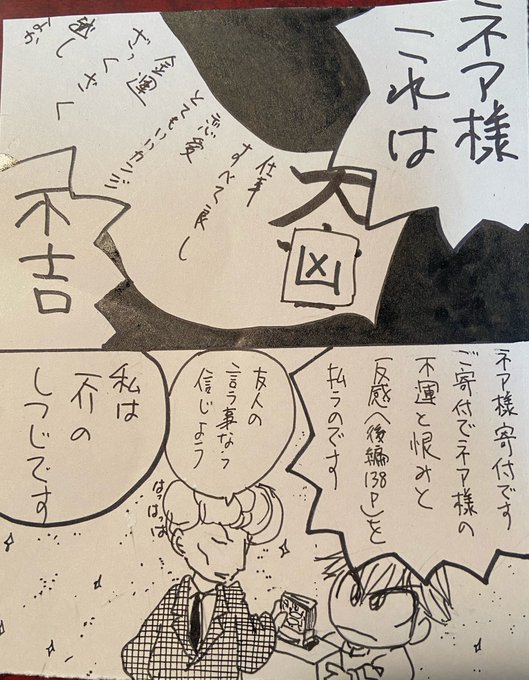 ネア様
これは
大
凶
仕事
すべて良し
恋愛
とてもいいカンジ
金運
ざっくざく
不吉
ネア様寄付です
ご寄付でネア様の
不運と恨みと
反感(後編138P)を
払うのです
友人の
言う事なら
信じよう
はっはっは
私は
不の
しつじです